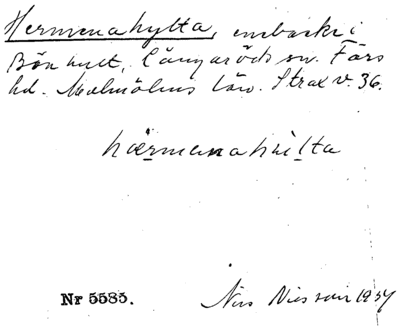 Hermenahylta, embuske i
Bön hult, Långaröds sn. Färs
hd. Malmöhus län. Strax v. 36.
hærmanahilta
Nr 5585.
Nils Nilsson 1934